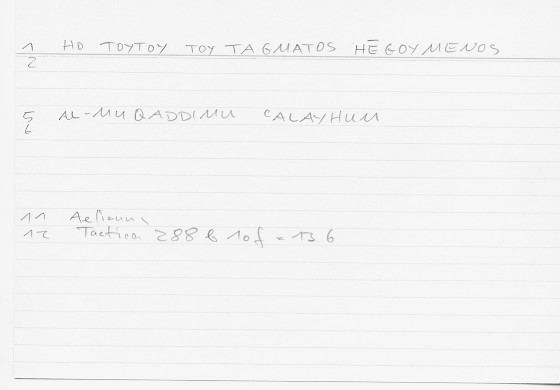 1 HO TOYTOY TOY TAGMATOS HĒGOYMENOS
2
5 AL-MUQADDIMU ʿALAYHUM
6
11 Aelianus
12 Tactica 288 b 10f = 13 6